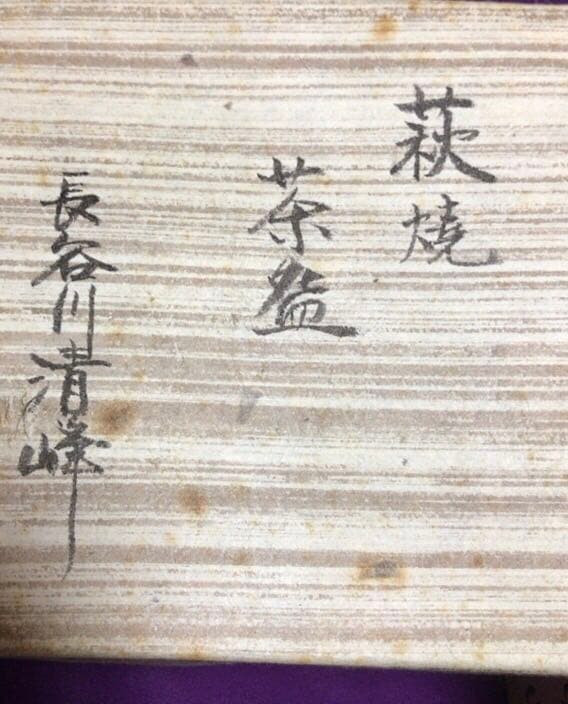 萩焼
茶盌
長谷川清峰